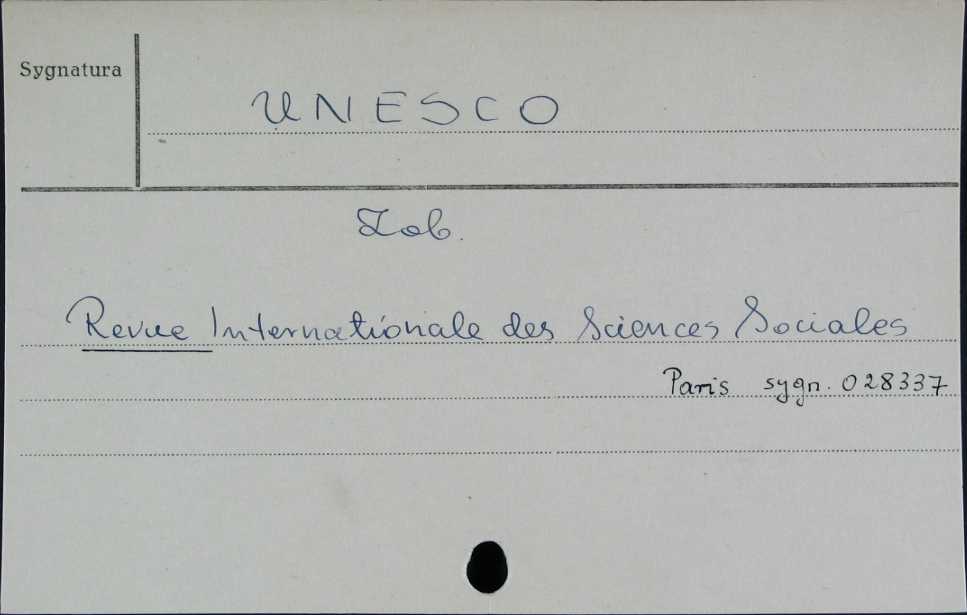 Sygnatura
UNESCO
Zob.
Revue Internationale des Sciences Sociales
Paris sygn. 028337